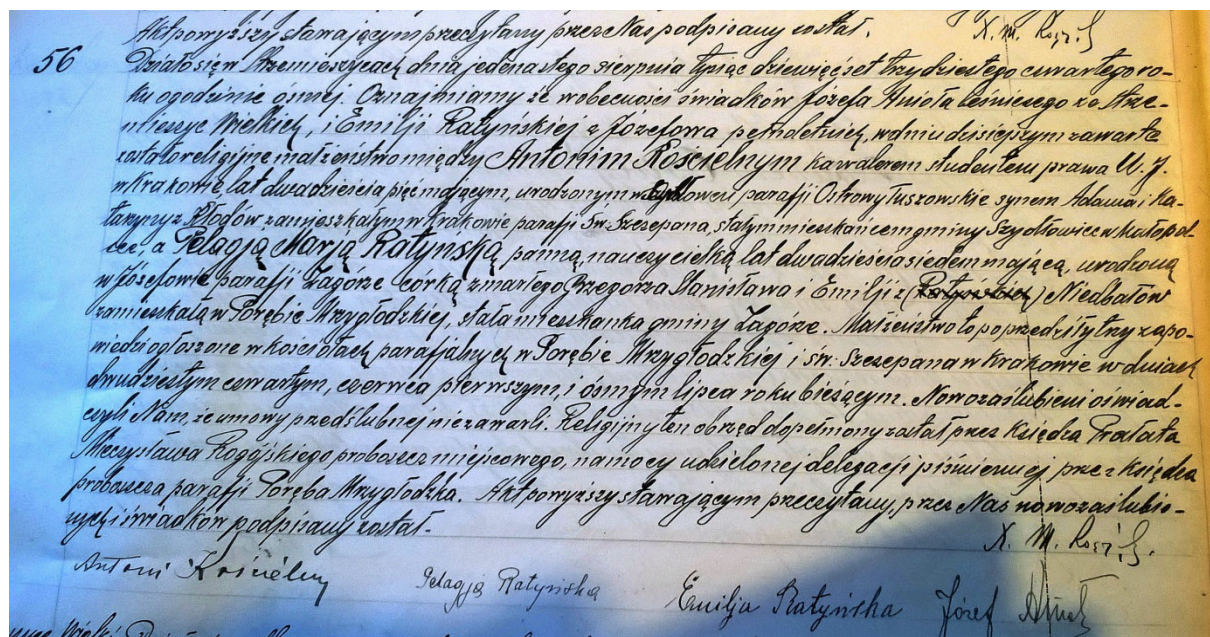 Akt powyższy stawającym przeczytany przez Nas podpisany został. X. M. Rogój
56
Działo się w Strzemieszycach dnia jedenastego sierpnia tysiąc dziewięćset trzydziestego czwartego ro-
ku o godzinie ósmej. Oznajmiamy że w obecności świadków Józefa Anioła leśniczego ze Strze-
mieszyc Wielkich, i Emilji Ratyńskiej z Józefowa pełnoletnich, w dniu dzisiejszym zawarte
zostało religijne małżeństwo między Antonim Kościelnym kawalerem studentem prawa U. J.
w Krakowie lat dwadzieścia pięć mającym, urodzonym w parafji Ostrowy Tuszowskie synem Adama i Ka-
tarzyny z Kłogów zamieszkałym w Krakowie parafji Św. Szczepana, stałym mieszkańcem gminy Szydłowiec w
a Pelagją Marją Ratyńską panną, nauczycielką lat dwadzieścia siedem mającą, urodzoną
w Józefowie parafji Zagórze córką zmarłego Grzegorza Stanisława i Emilji z (Ratyńskich) Niedbałów
zamieszkałą w Porębie Mrzygłodzkiej, stała mieszkanka gminy Zagórze. Małżeństwo to poprzedziły trzy zapo-
wiedzi ogłoszone w kościołach parafjalnych w Porębie Mrzygłodzkiej i św. Szczepana w Krakowie w dniach
dwudziestym czwartym, czerwca pierwszym, i ósmym lipca roku bieżącym. Nowozaślubieni oświad-
czyli Nam, że umowy przedślubnej nie zawarli. Religijny ten obrzęd dopełniony został przez Księdza Prałata
Mieczysława Rogójskiego proboszcza miejscowego, na mocy udzielonej delegacji piśmiennej przez Księdza
proboszcza parafji Poręba Mrzygłodzka. Akt powyższy stawającym przeczytany, przez Nas nowozaślubio-
nych i świadków podpisany został.-
X. M. Rogój.
Antoni Kościelny Pelagja Ratyńska Emilja Ratyńska Józef Anioł